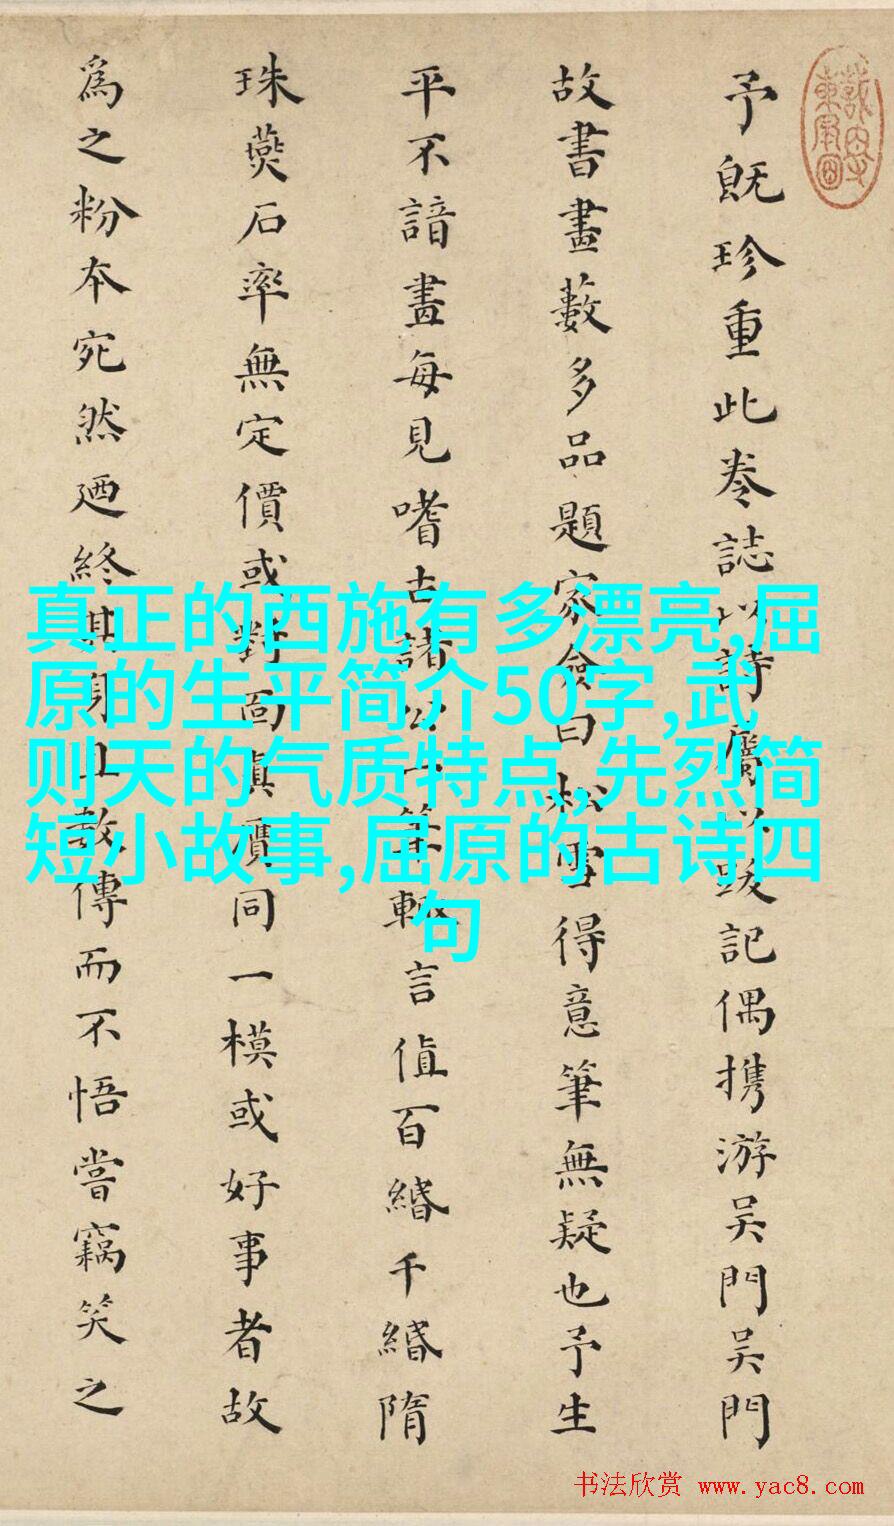 予既珍重此卷誌以詩屬以跋記偶携游吳門吳門
故書畫藪多品題家僉曰松雪得意筆無疑也予生
平不諳畫每見嗜古諸公一筆輙言值百緡千緡隋
珠燕石率無定價或對面真贋同一模或好事者故
為之粉本宛然廼終其身傳而不悟嘗竊笑之
真正的西施有多漂亮,屈
原的生平简介50字,武
则天的气质特点,先烈简
短小故事,屈原的古诗四
句
书法欣赏 www.yac8.com